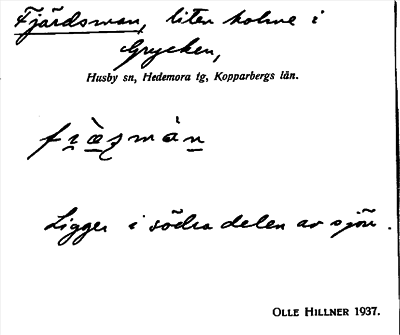 Fjärdsman, liten holme i
Grycken,
Husby sn, Hedemora tg, Kopparbergs län.
Ligger i södra delen av sjön.
OLLE HILLNER 1937.